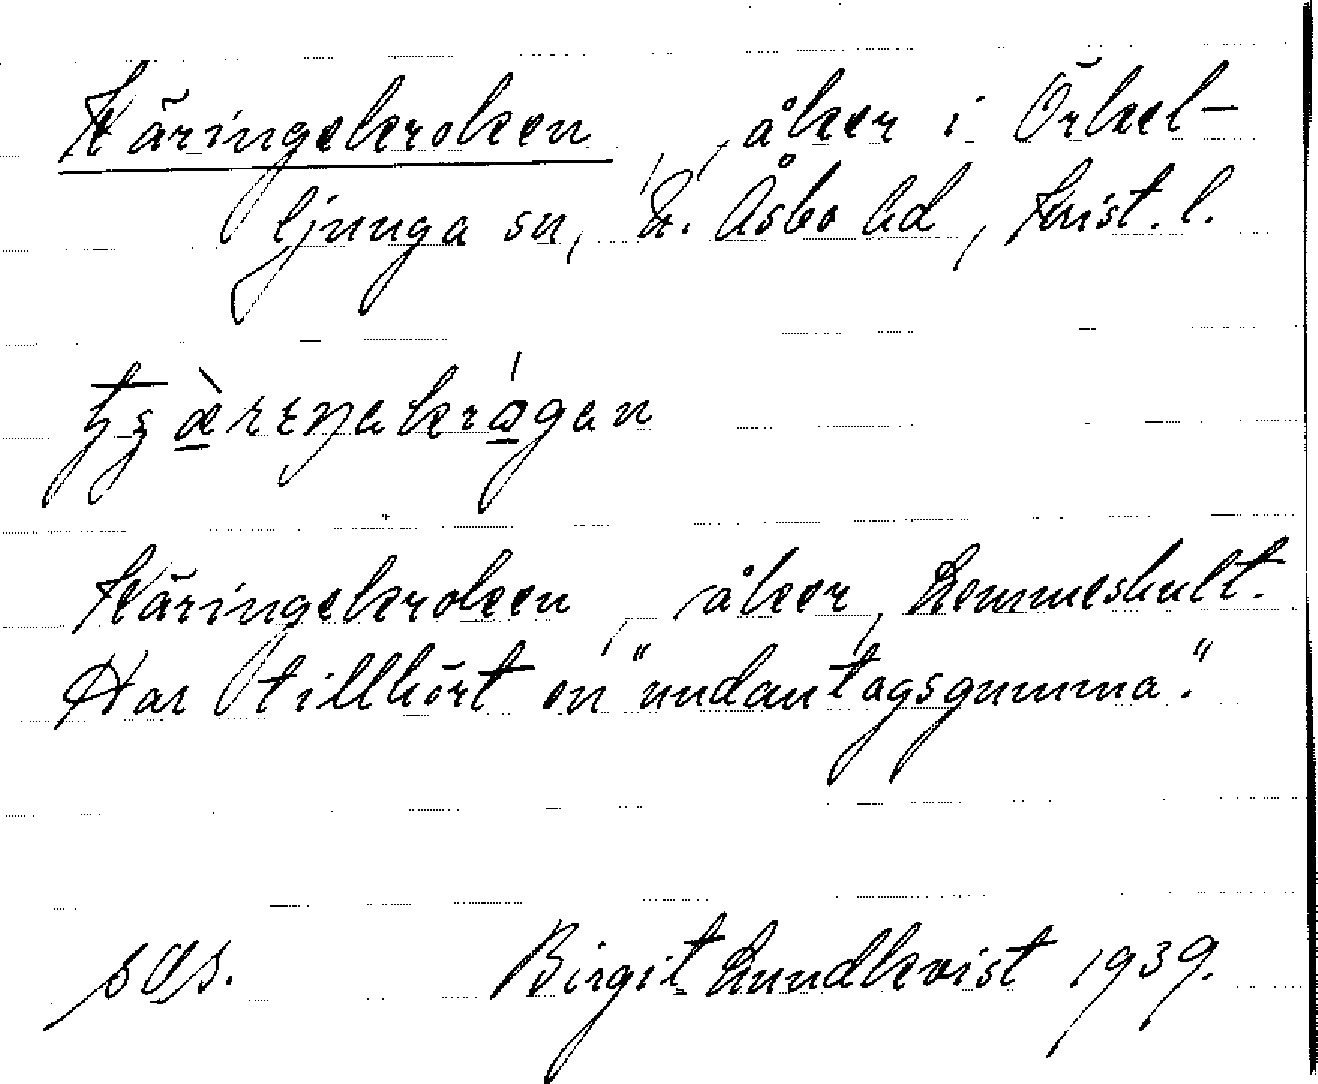 Käringekroken, åker i Örkel-
ljunga sn, N. Åsbo hd, Krist. l.
Käringekroken, åker, Lemmeshult.
Har tillhört en "undantagsgumma".
sds. Birgit Lundkvist 1939.